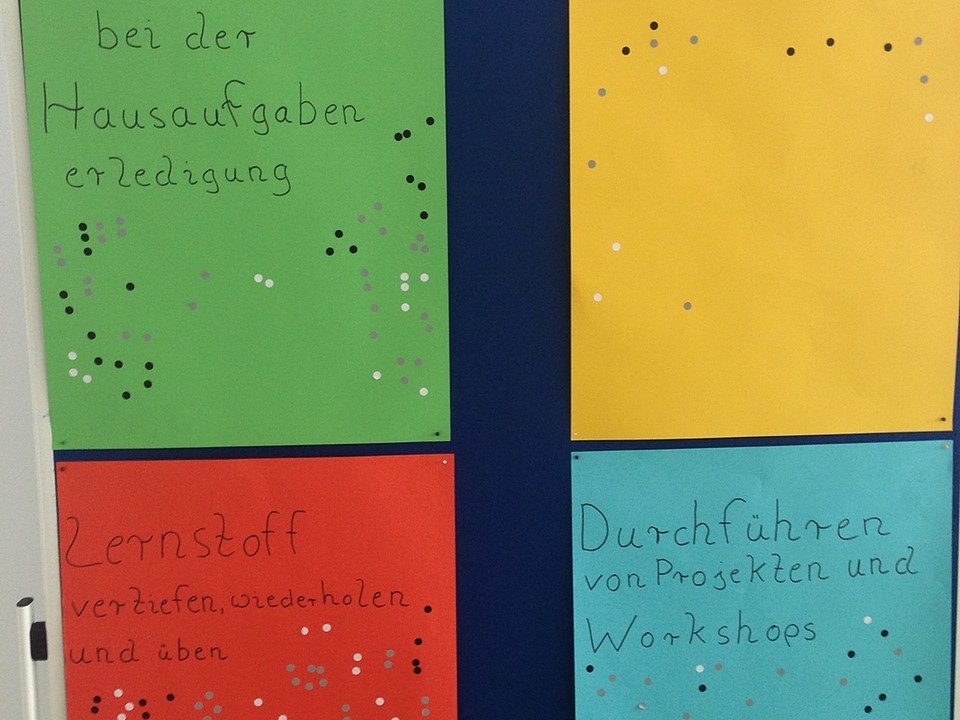 bei der
Hausaufgaben
erledigung
Lernstoff
vertiefen, wiederholen
und üben
Durchführen
von Projekten und
Workshops